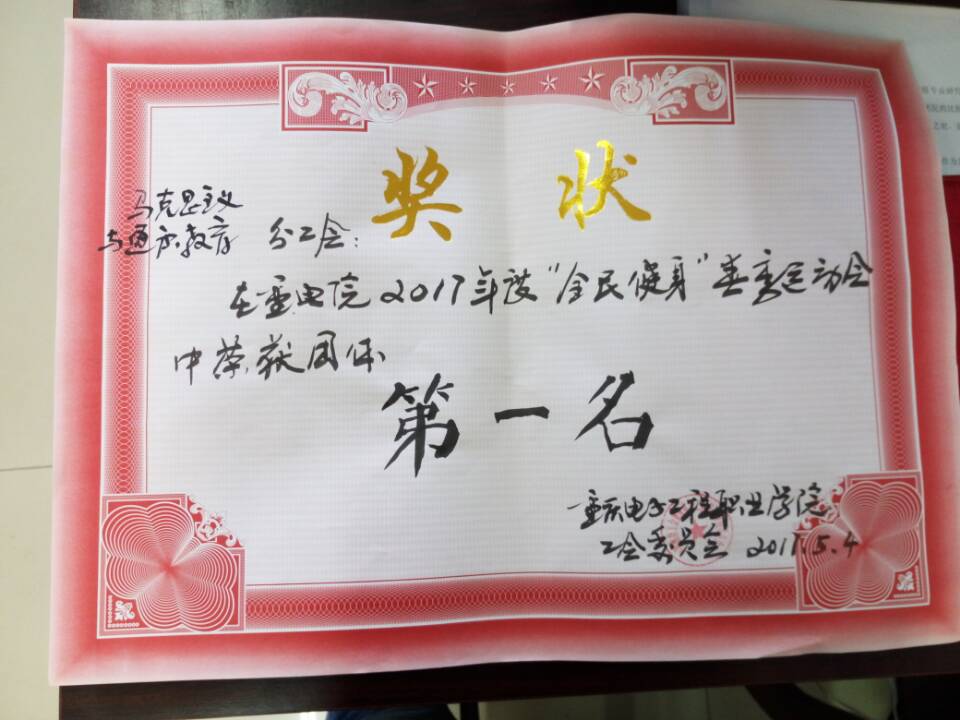 奖 状
马克思主义
与通识教育 分工会:
在重电院2017年度“全民健身”春季运动会
中荣获团体
第一名
重庆电子工程职业学院
工会委员会 2017.5.4